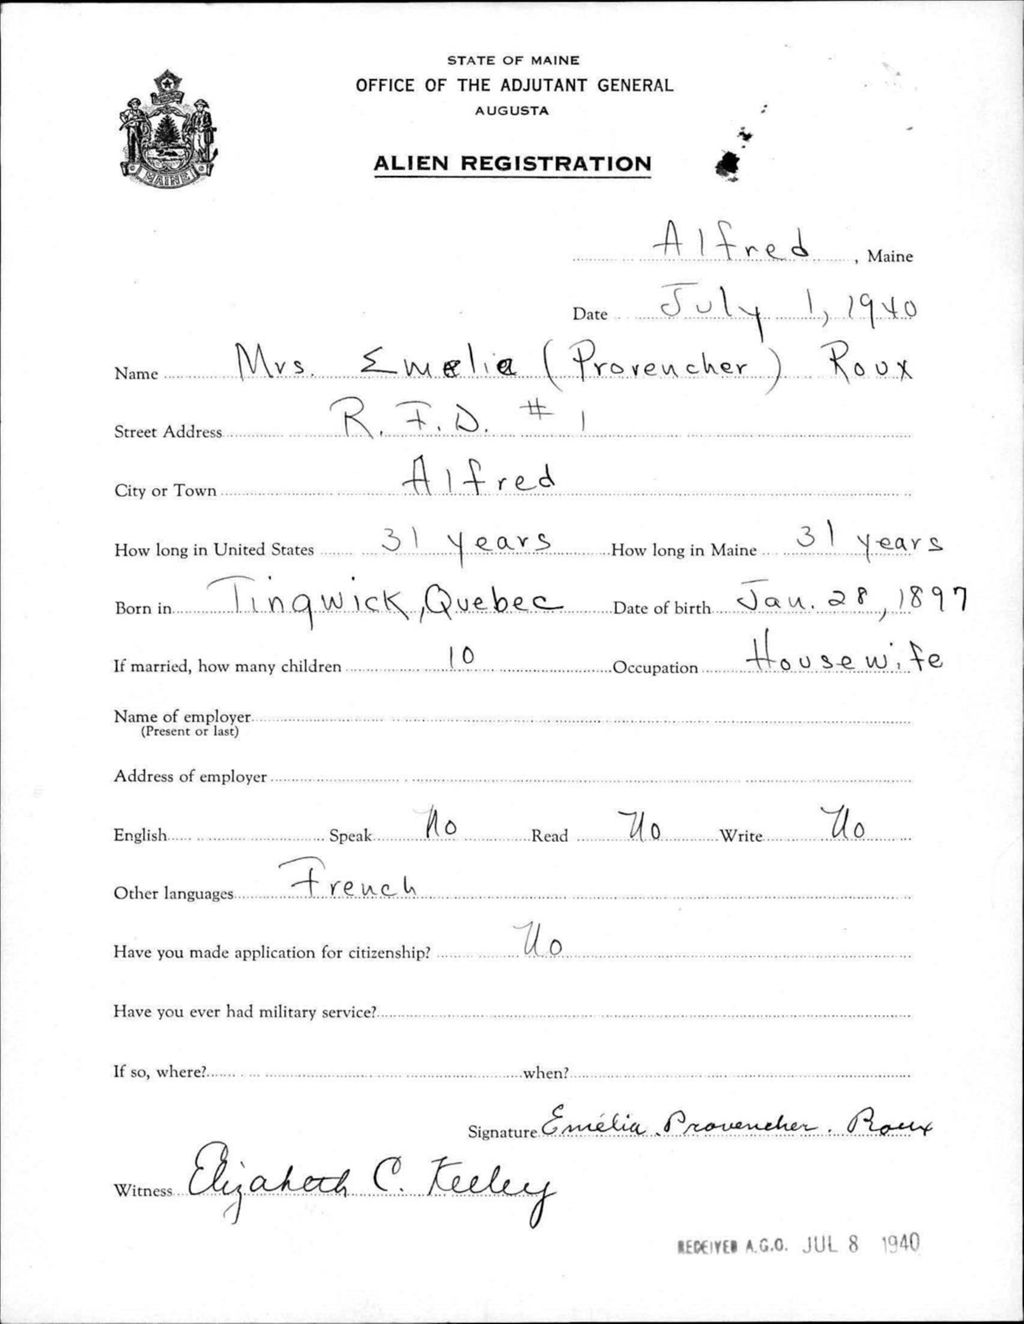 STATE OF MAINE
OFFICE OF THE ADJUTANT GENERAL
AUGUSTA
ALIEN REGISTRATION
MAINE
Alfred, Maine
Date July 1, 1940
Name Mrs. Emelia (Provencher) Roux
Street Address R.F.D. #1
City or Town Alfred
How long in United States 31 years How long in Maine 31 years
Born in Tingwick, Quebec Date of birth Jan. 28, 1897
If married, how many children 10 Occupation Housewife
Name of employer
(Present or last)
Address of employer
English Speak No Read No Write No
Other languages French
Have you made application for citizenship? No
Have you ever had military service?
If so, where? when?
Signature Emélia Provencher. Roux
Witness Elizabeth C. Keeley
RECEIVED A.G.O. JUL 8 1940